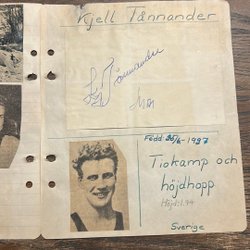 Kjell Tånnander
Kj Tånnander
Född: 25/6-1927
Tiokamp och
höjdhopp
Höjd: 1.94
Sverige